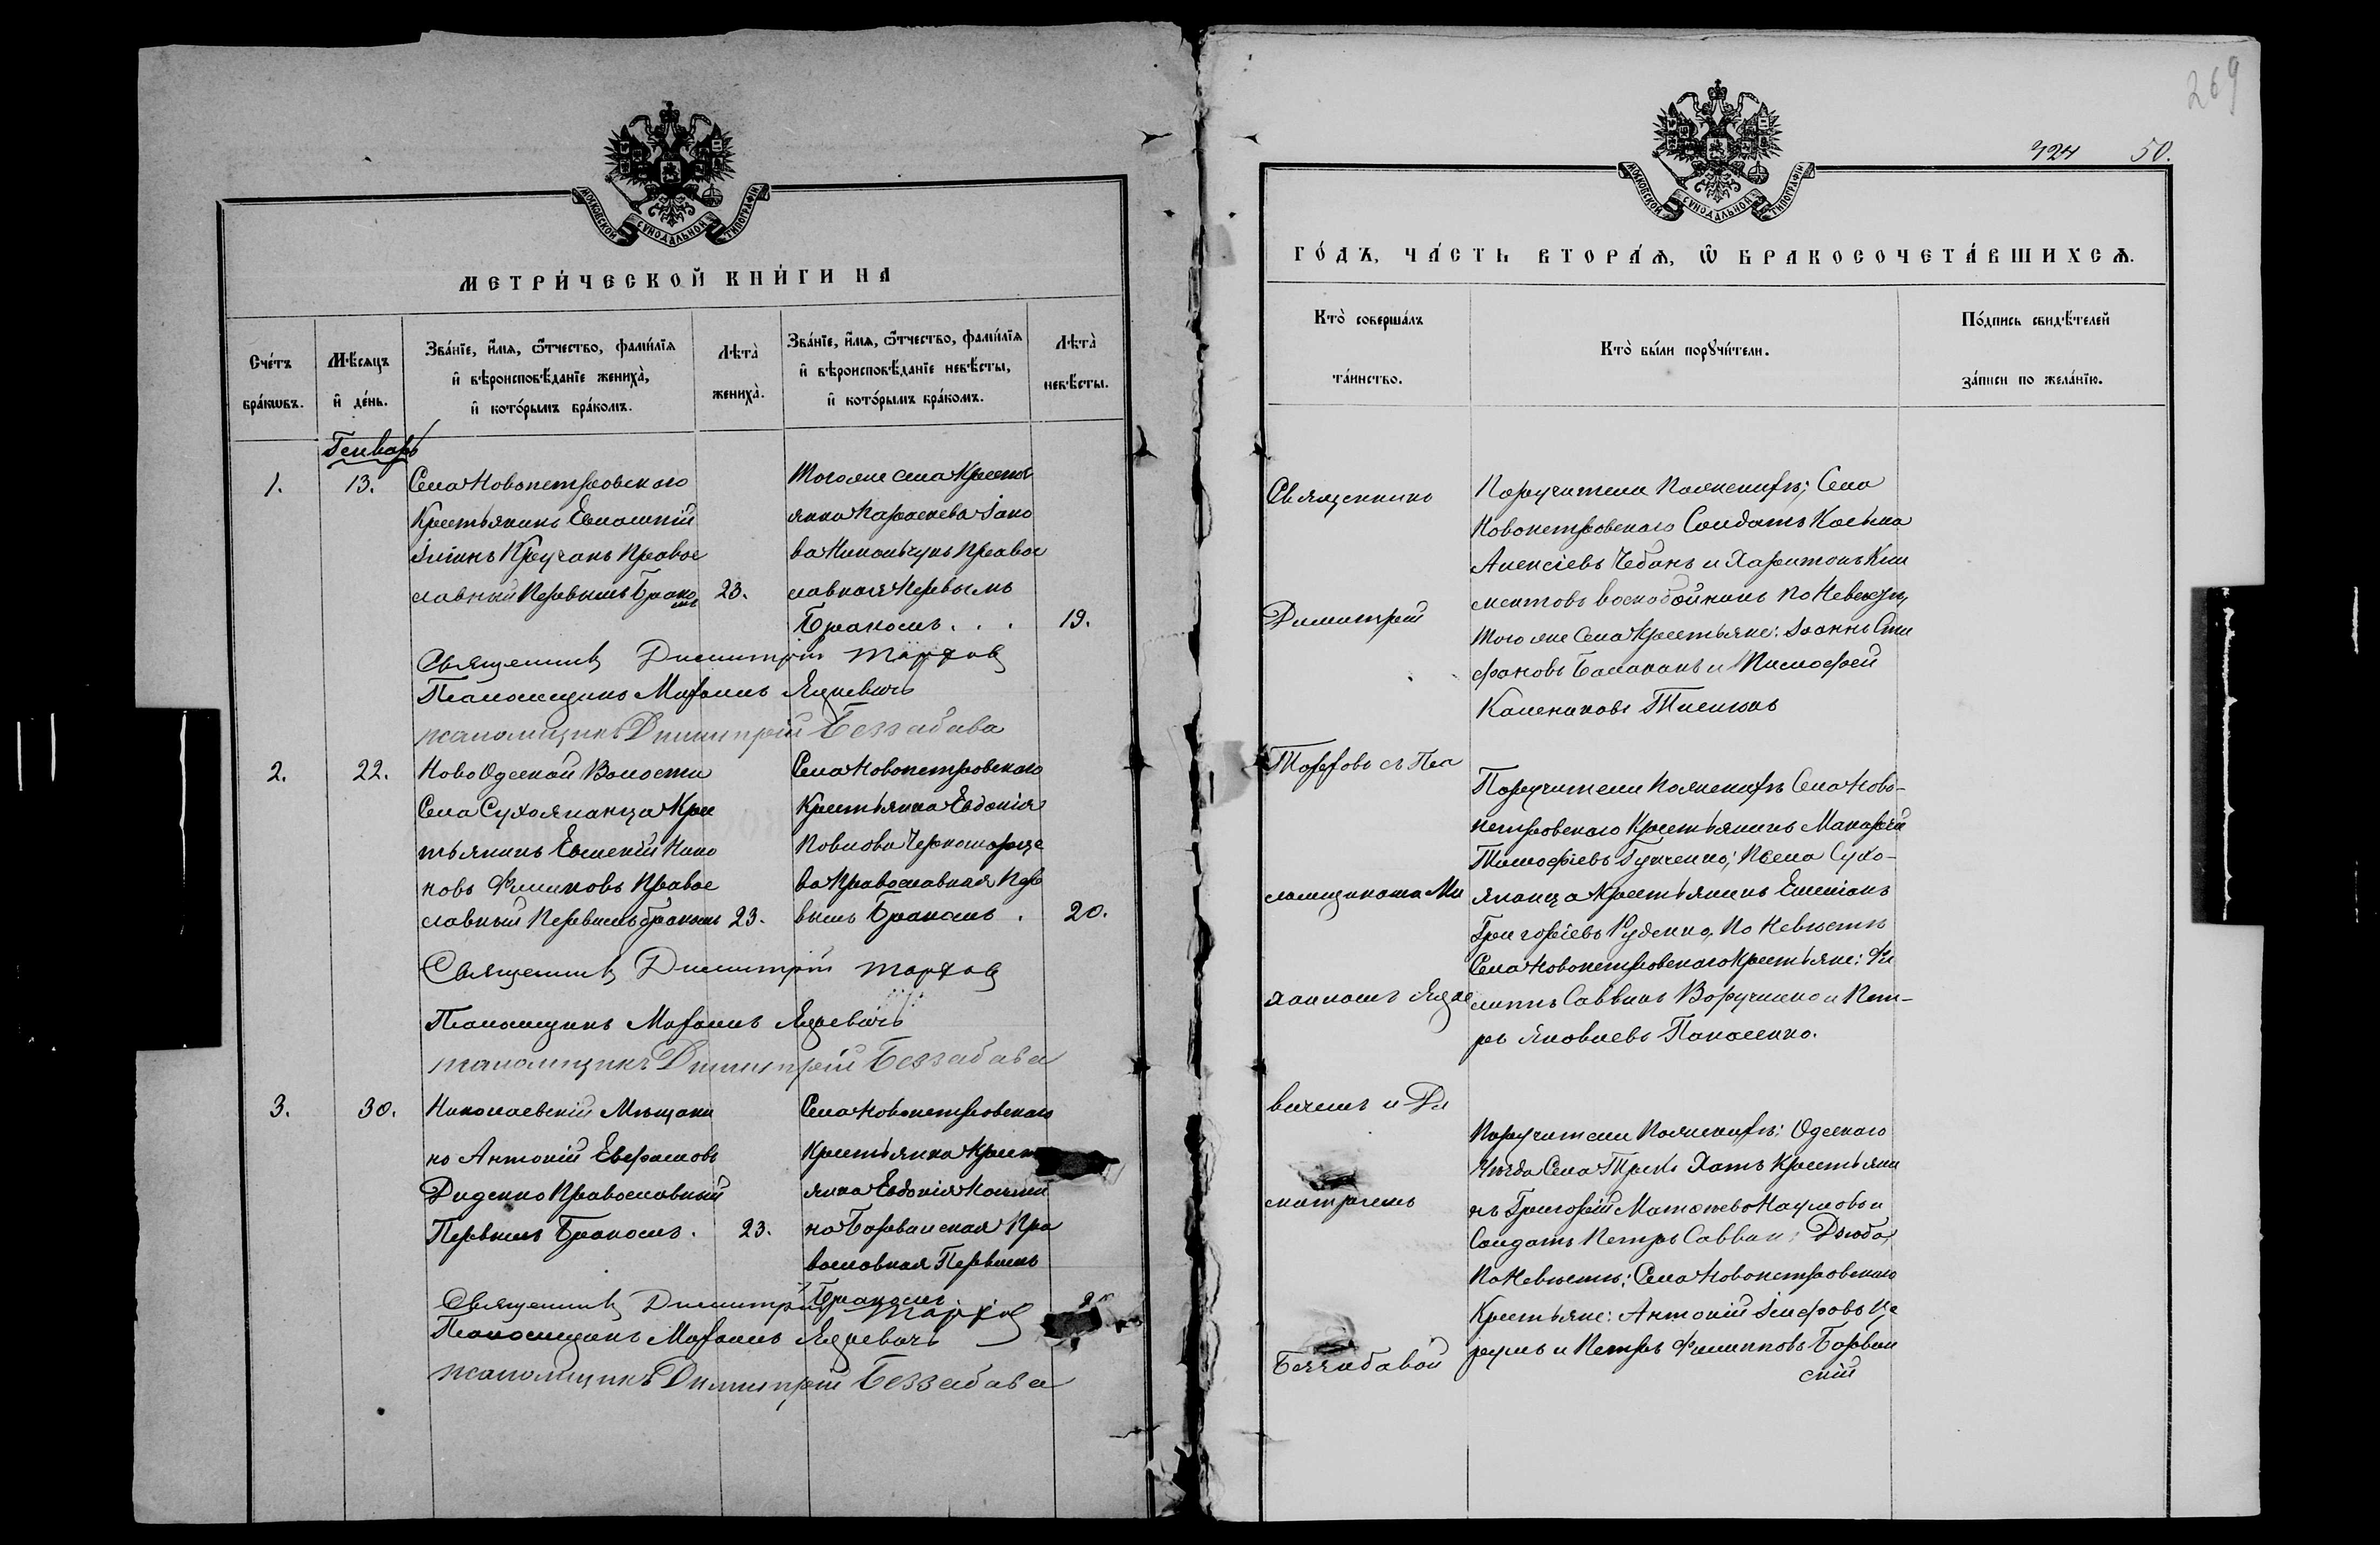 269
424 50.
МОСКОВСКОЙ СѴНОДАЛЬНОЙ ТИПОГРАФІИ
МЕТРИ́ЧЕСКОЙ КНИ́ГИ НА
Сче́тъ бра́кωвъ.
Мѣ́сяцъ и҆ де́нь.
Зва́нїе, и҆́мѧ, ѻ҆́тчество, фамн́лїѧ
и҆ вѣроисповѣ́данїе жениха̀,
и҆ кото́рымъ бра́комъ.
Лѣта̀
жениха̀.
Зва́нїе, и҆́мѧ, ѻ҆́тчество, фами́лїѧ
и҆ вѣроисповѣ́данїе невѣ́сты,
и҆ кото́рымъ бра́комъ.
Лѣта̀
невѣ́сты.
Генварь
1.
13.
Села Новопетровского
Крестьянинъ Евлампій
Іліинъ Кручанъ Правос
славный Первымъ Брако
мъ
23.
Того же села Крестья
янка Параскева Іако
ва Никольчукъ Правос
славная Первымъ
Бракомъ . . .
19.
Священникъ Димитрій Торховъ
Псаломщикъ Михаилъ Яцкевичъ
псаломщикъ Димитрій Беззабава
2.
22.
НовоОдеской Волости
Села Сухояланца Крес
тьянинъ Евменій Нико
новъ Филиповъ Правос
славный Первымъ бракомъ
23.
Села Новопетровского
Крестьянка Евдокія
Павлова Черноморце
ва Православная Пер
вымъ Бракомъ .
20.
Священникъ Димитрій Торховъ
Псаломщикъ Михаилъ Яцкевичъ
псаломщикъ Димитрій Беззабава
3.
30.
Николаевскій Мѣщани
нъ Антоній Евфамовъ
Диденко Православный
Первымъ Бракомъ.
23.
Села Новопетровского
Крестьянка Крест
янка Евдокія
на Борованская Пра
вославная Первымъ
Бракомъ
Священникъ Димитрій Торховъ
Псаломщикъ Михаилъ Яцкевичъ
псаломщикъ Димитрій Беззабава
МОСКОВСКОЙ СѴНОДАЛЬНОЙ ТИПОГРАФІИ
ГО́ДЪ, ЧА́СТЬ ВТОРА́Ѧ, Ѡ҆ БРАКОСОЧЕТА́ВШИХСѦ.
Кто̀ соверша́лъ
та́инство.
Кто̀ бы́ли порꙋчи́тели.
По́дпись свидѣ́телей
за́писи по жела́нїю.
Священникъ
Димитрій
Торховъ съ Пса
ломщиками Ми
хаиломъ Яцке
вичемъ и Ди
митріемъ
Беззабавой
Поручители По женихѣ; Села
Новопетровского Солдатъ Косьма
Алексіевъ Чебанъ и Харитонъ Кли
ментовъ Воскобойникъ По Невесте,
того же Села Крестьяне: Іоаннъ Сте
фановъ Балаканъ и Тимофей
Калениковъ
Поручители По женихѣ Села Ново-
петровского Крестьянинъ Макарій
Тимофіевъ Гунченко; и Села Сухо-
яланца Крестьянинъ Емеліанъ
Григоріевъ Руденко, По Невѣстѣ
Села Новопетровского Крестьяне: Фи
липпъ Саввинъ и Пет-
ръ Яковлевъ Панасенко.
Поручители По женихѣ: Одеского
Уѣзда Села Трехъ Хатъ Крестьяни
нъ Григорій Матѳеевъ Наумовъ и
Солдатъ Петръ Саввин: Дзюба,
По Невѣстѣ: Села Новопетровского
Крестьяне: Антоній
и Петръ Филипповъ Борован
скій